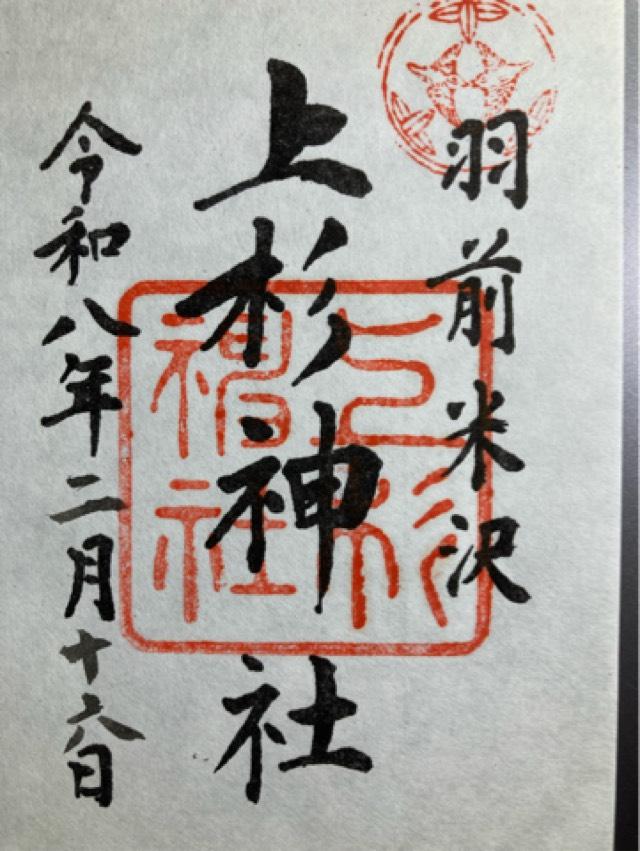 羽前米沢
上杉神社
令和八年二月十六日
上杉
神社